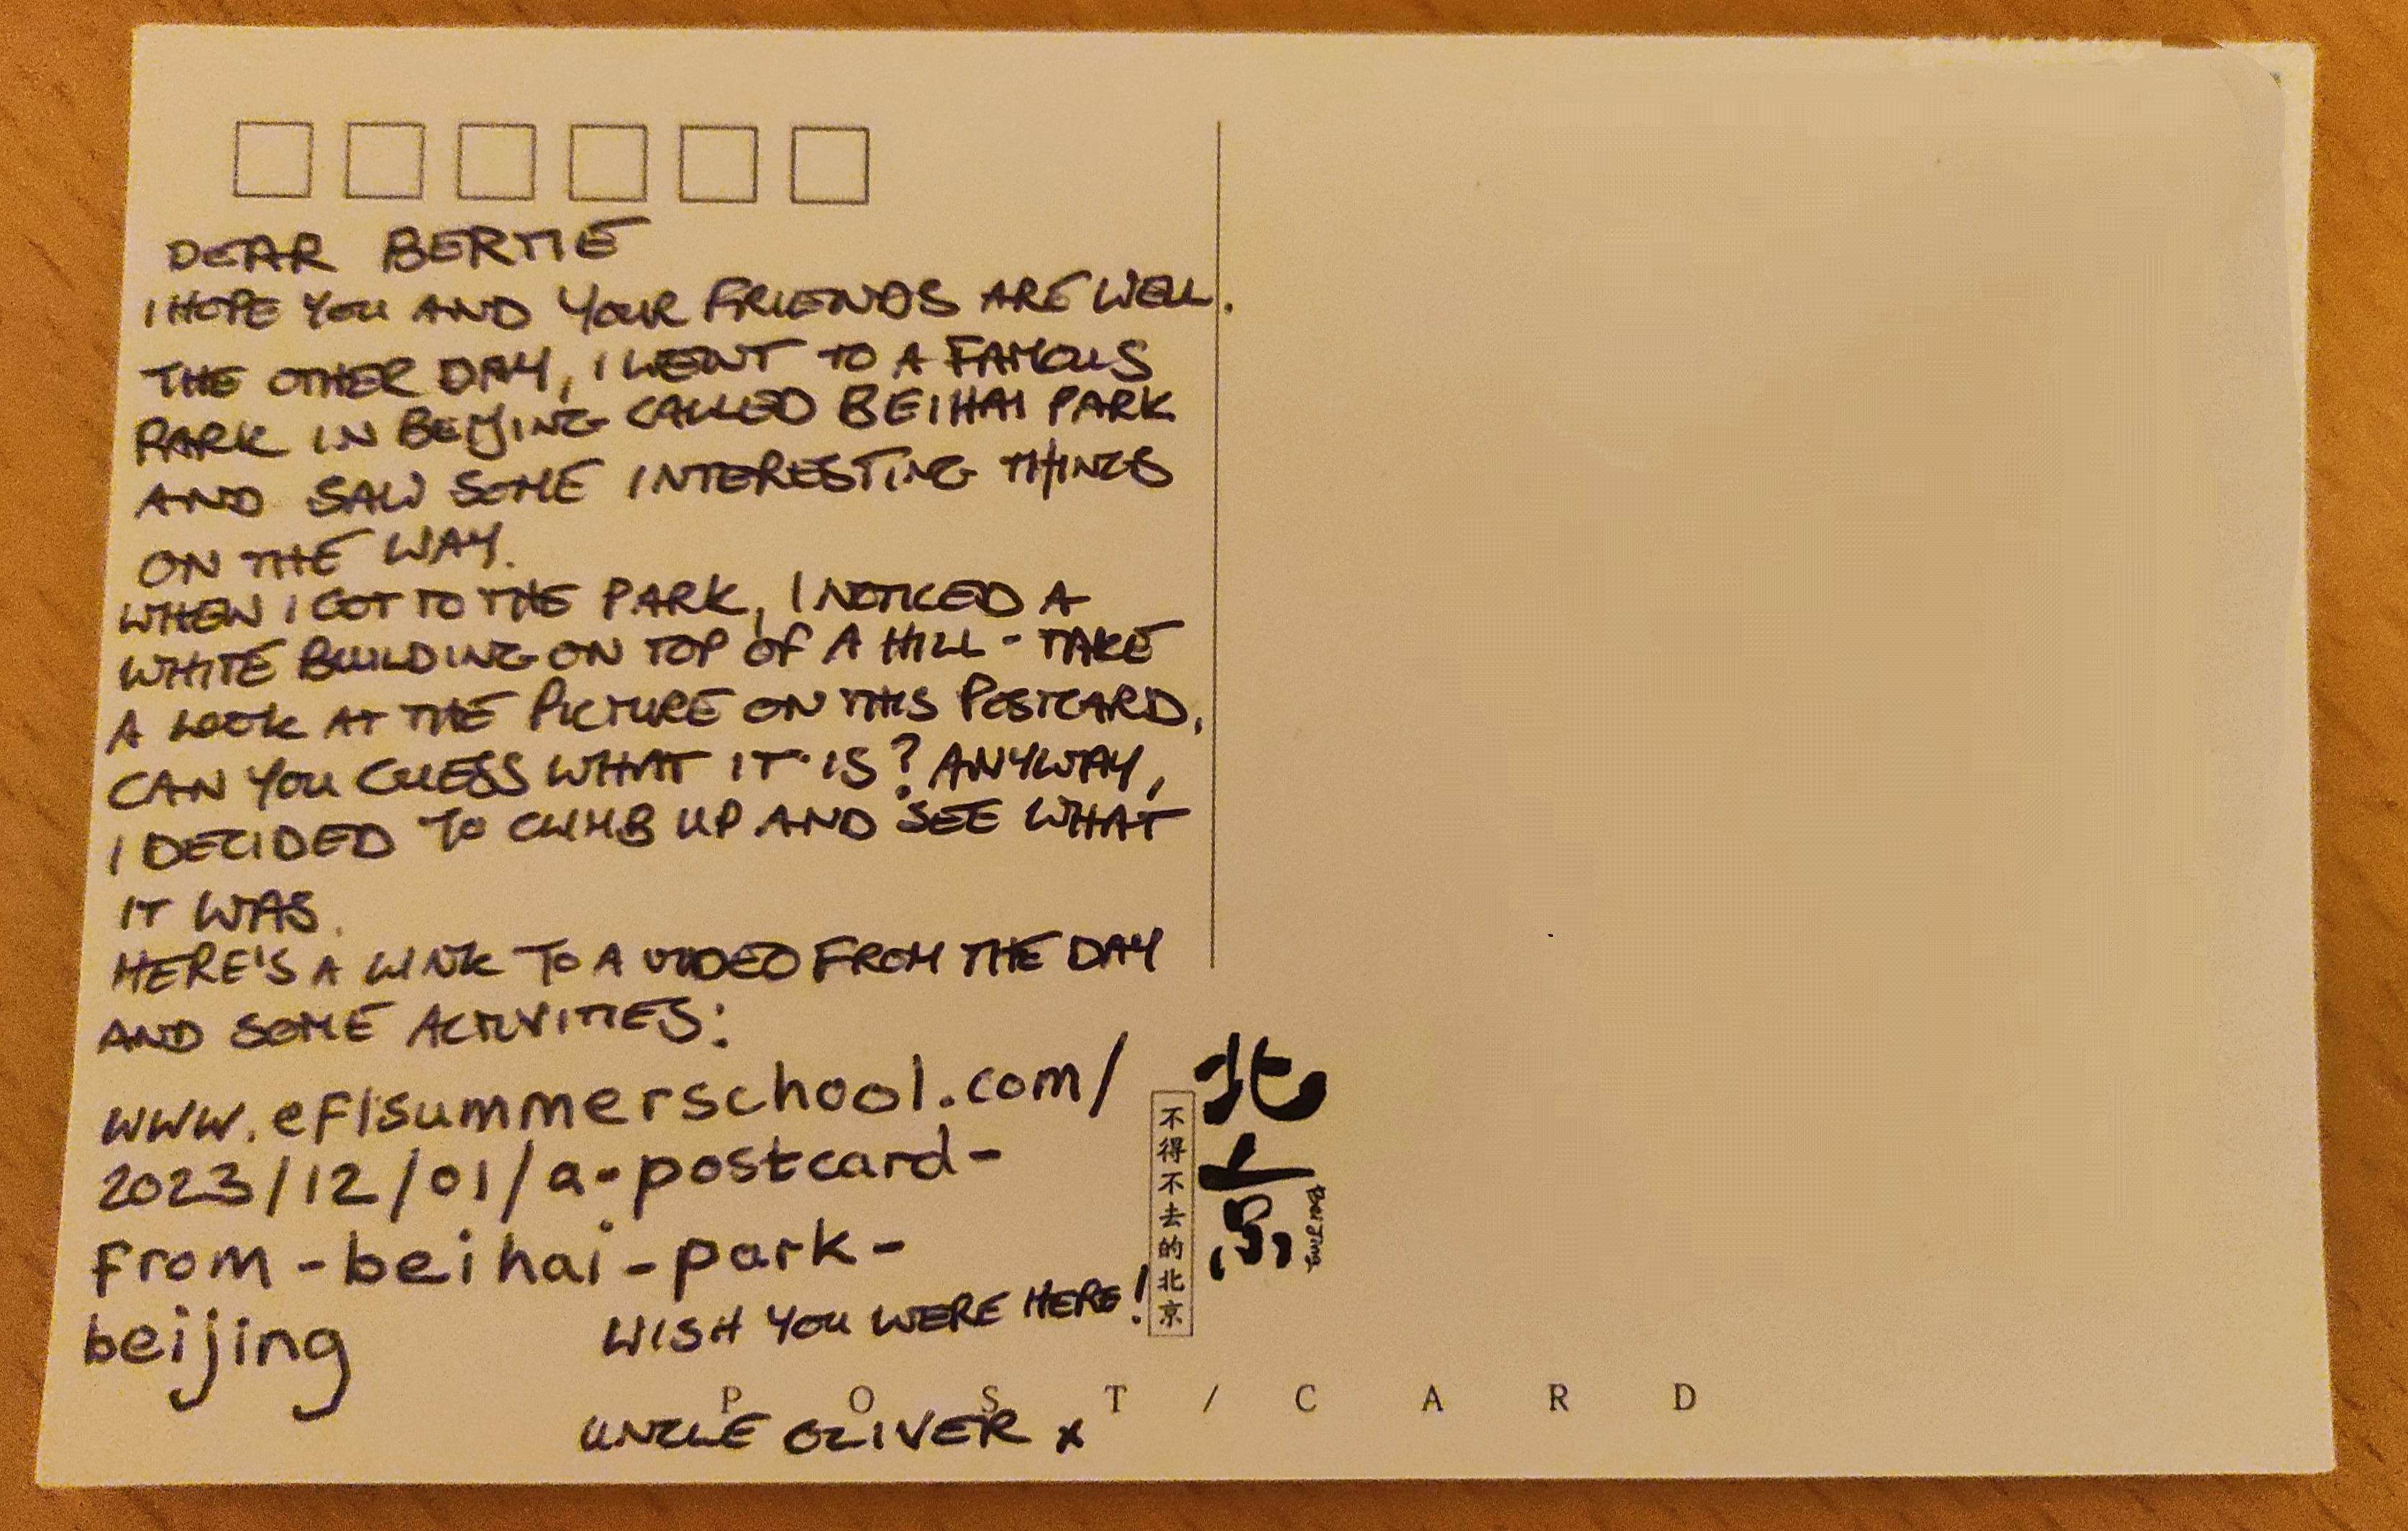 DEAR BERTIE
I HOPE YOU AND YOUR FRIENDS ARE WELL.
THE OTHER DAY, I WENT TO A FAMOUS
PARK IN BEIJING CALLED BEIHAI PARK
AND SAW SOME INTERESTING THINGS
ON THE WAY.
WHEN I GOT TO THE PARK, I NOTICED A
WHITE BUILDING ON TOP OF A HILL - TAKE
A LOOK AT THE PICTURE ON THIS POSTCARD,
CAN YOU GUESS WHAT IT IS? ANYWAY,
I DECIDED TO CLIMB UP AND SEE WHAT
IT WAS.
HERE'S A LINK TO A VIDEO FROM THE DAY
AND SOME ACTIVITIES:
www.eflsummerschool.com/
2023/12/01/a-postcard-
from-beihai-park-
beijing
WISH YOU WERE HERE!
UNCLE OLIVER x
北京
BeiJing
不得不去的北京
POST/CARD